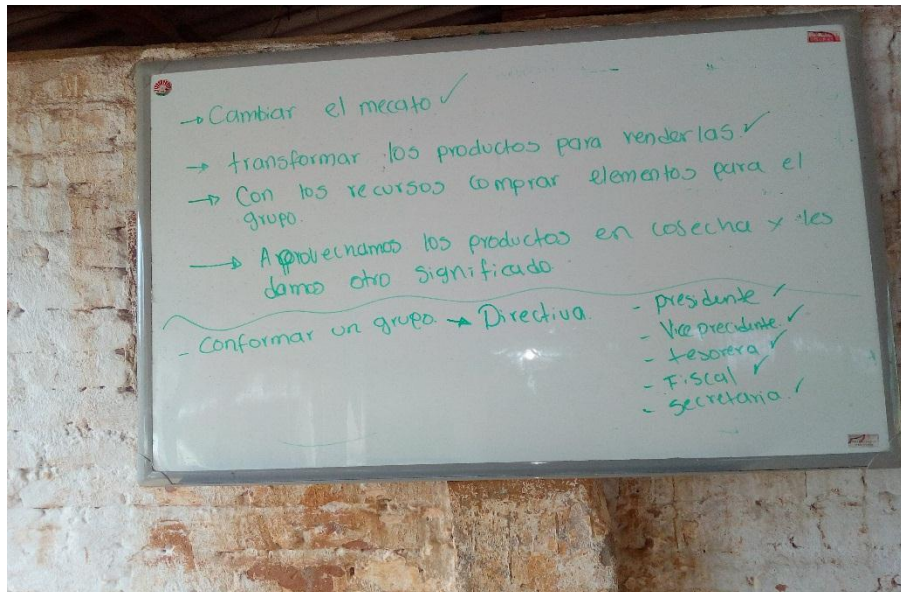 → Cambiar el mecato ✓
→ transformar los productos para venderlas. ✓
→ Con los recursos comprar elementos para el
grupo.
→ Aprovechamos los productos en cosecha y les
damos otro significado.
- Conformar un grupo. → Directiva.
- presidente ✓
- Vice precidente. ✓
- tesorera ✓
- Fiscal ✓
- secretaria. ✓